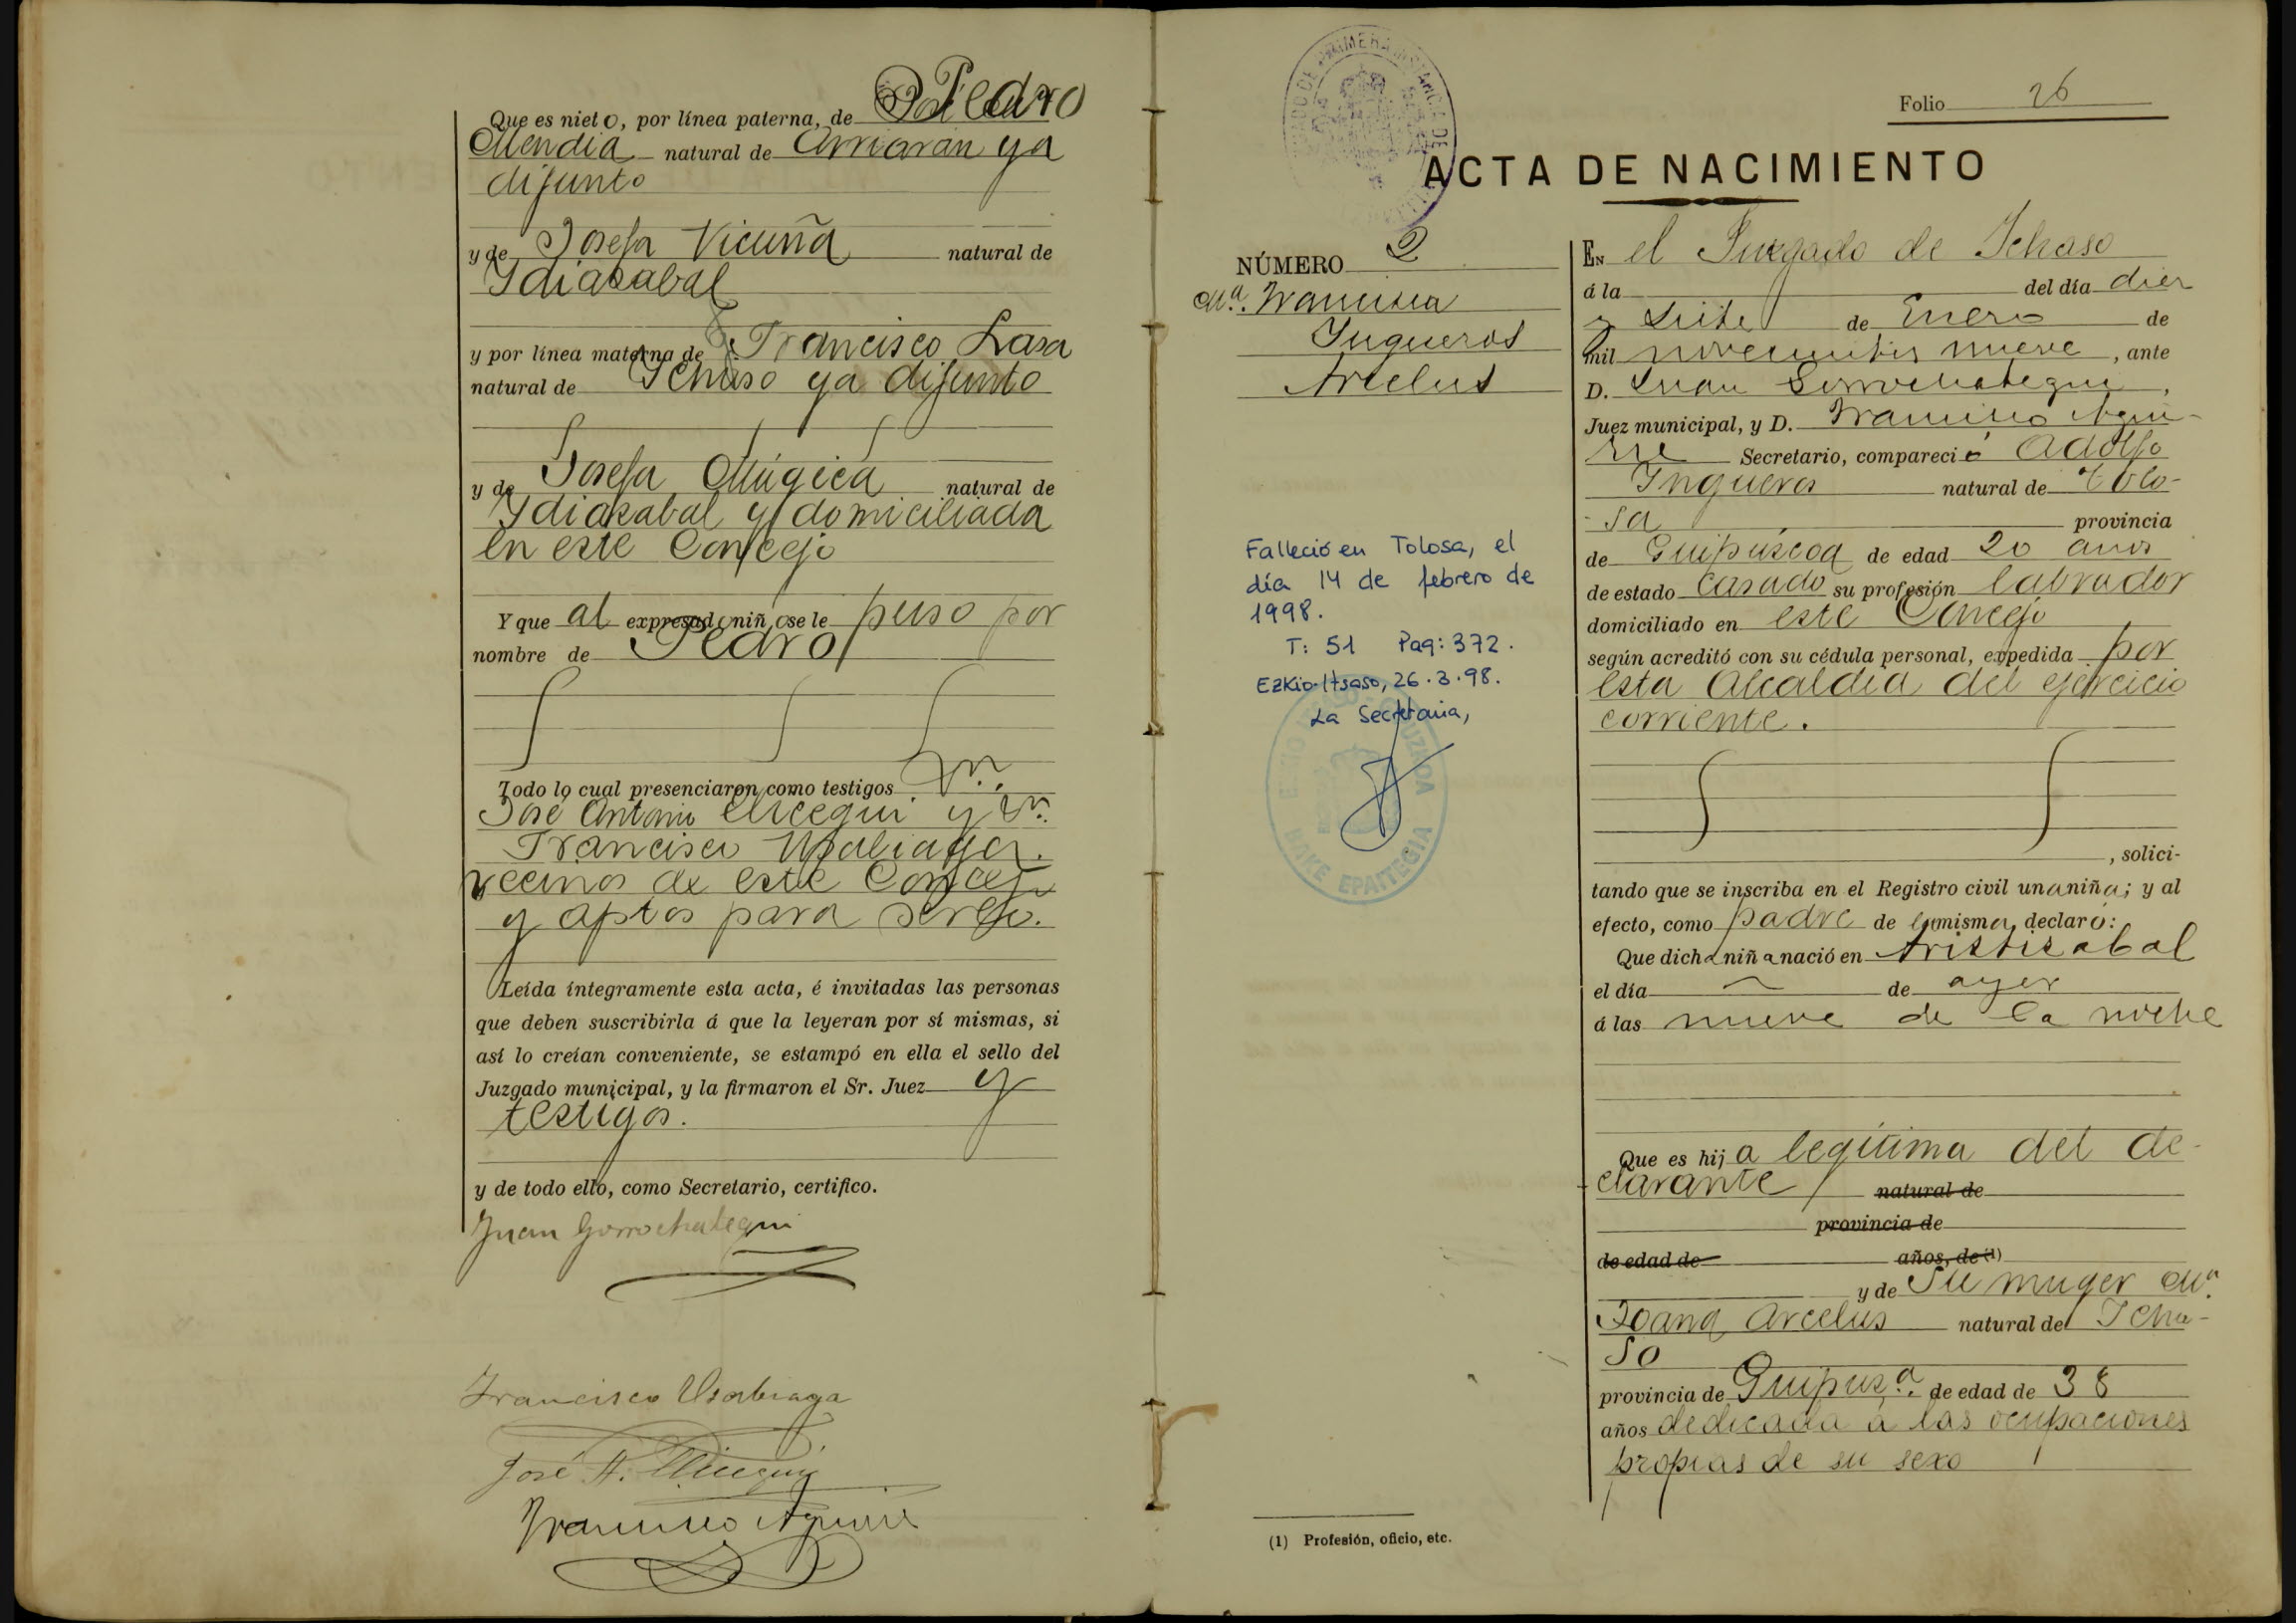 Que es nieto, por línea paterna, de Pedro
Mendia natural de Arriaran ya
difunto
y de Josefa Vicuña natural de
Ydiazabal
y por línea materna de Francisco Lasa
natural de Ychaso ya difunto
y de Josefa Múgica natural de
Ydiazabal y domiciliada
en este Concejo
Y que al expresado niño se le puso por
nombre de Pedro
Todo lo cual presenciaron como testigos Dn.
José Antonio Elicegui y Dn.
Francisco Usabiaga
vecinos de este Concejo
y aptos para serlo.
Leída íntegramente esta acta, é invitadas las personas
que deben suscribirla á que la leyeran por sí mismas, si
así lo creían conveniente, se estampó en ella el sello del
Juzgado municipal, y la firmaron el Sr. Juez y
testigos.
y de todo ello, como Secretario, certifico.
Juan Gorrochategui
Francisco Usabiaga
José A. Elicegui
Francisco Aguirre
Folio 26
ACTA DE NACIMIENTO
NÚMERO 2
Mª. Francisca
Yngueros
Arcelus
Falleció en Tolosa, el
día 14 de febrero de
1998.
T: 51 Pag: 372.
Ezkio-Itsaso, 26.3.98.
La Secretaria,
BAKE EPAITEGIA
EN el Juzgado de Ychaso
á la del día diez
y siete de Enero de
mil novecientos nueve, ante
D. Juan Gorrochategui,
Juez municipal, y D. Francisco Agui-
rre Secretario, compareció Adolfo
Yngueros natural de Tolo-
sa provincia
de Guipúzcoa de edad 20 años
de estado Casado su profesión labrador
domiciliado en este Concejo
según acreditó con su cédula personal, expedida por
esta Alcaldia del ejercicio
corriente.
, solici-
tando que se inscriba en el Registro civil una niña; y al
efecto, como padre de la misma, declaró:
Que dicha niña nació en Aristizabal
el día de ayer
á las nueve de la noche
Que es hija legitima del de-
clarante natural de
provincia de
de edad de años, de (1)
y de su muger Mª.
Joana Arcelus natural de Ycha-
so
provincia de Guipuzª. de edad de 38
años dedicada á las ocupaciones
propias de su sexo
(1) Profesión, oficio, etc.